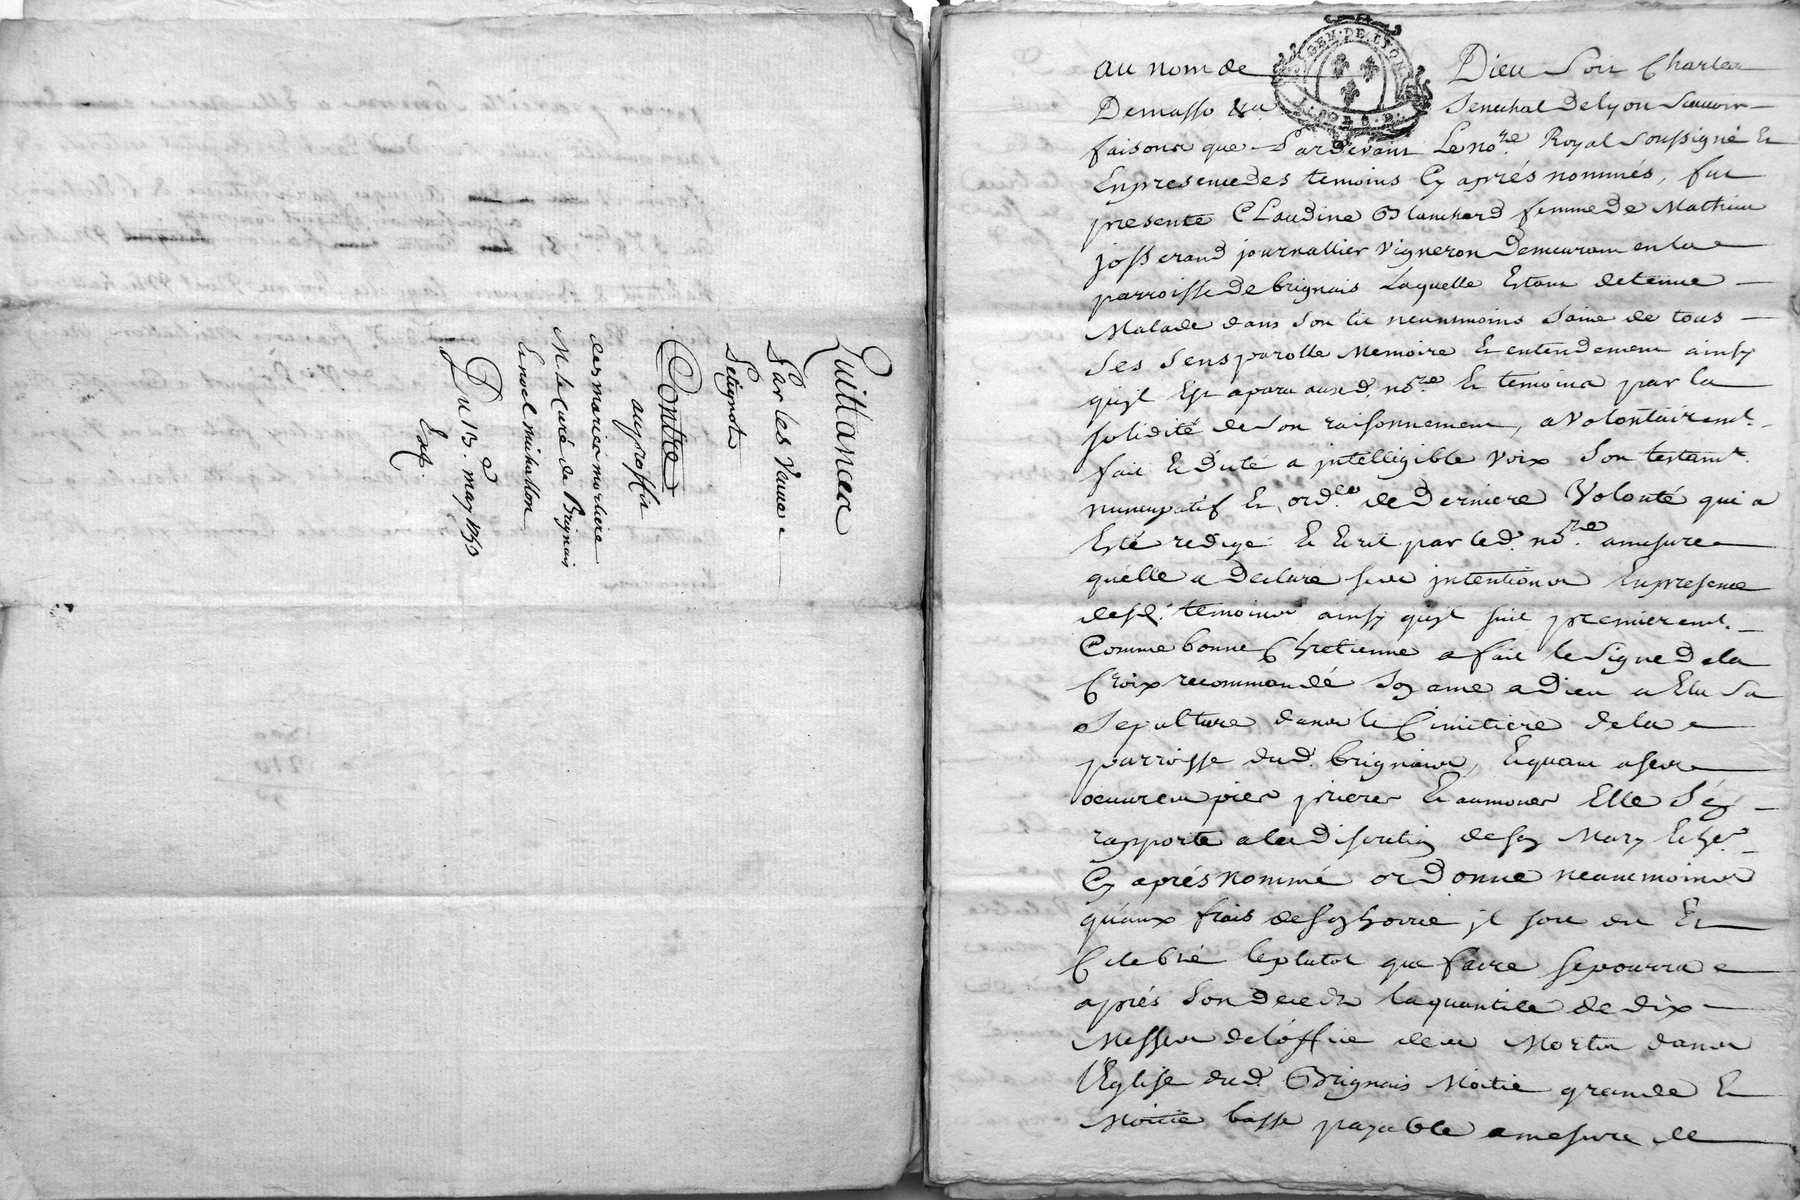 Quittances
Par les Vauva
Setignot
Contre
au proffit
des mariés morliere
Mr le curé de Brignais
Et noel michallon
Du 13e may 1750
Exp.
GEN. DE LYON
Au nom de Dieu Soit Charles
Demasso &a Senechal de lyon Scavoir
faisons que Pardevant Le nore Royal soussigné Et
En presence des temoins Cy aprés nommés, fut
presente CLaudine Blanchard femme de Mathieu
josserand journallier Vigneron demeurant en la
parroisse de brignais Laquelle Estant detenue
Malade dans son lit neanmoins saine de tous
ses sens parolle Memoire Et entendement ainsy
quyl Est aparu aud. nore Et temoins par la
solidité de son raisonnement, a Volontairemt.
fait Et dicté a intelligible Voix son testamt.
nuncupatif Et ordce de derniere Volonté qui a
Esté redigé Et Ecrit par led. nore amesure
quélle a declaré ses intentions En presence
desd. temoins ainsy quyl suit premieremt.
Comme bonne Chretienne a fait le signe de la
Croix recommandé son ame a Dieu a Elu sa
sepulture dans le Cimetiere de la
parroisse dud. brignais, Et quant a ses
oeuvres pies prieres Et aumones Elle s'en
rapporte a la discretion de son Mary Et her.
Cy aprés nommé ordonne neanmoins
qu'aux frais de son hoirie jl soit dit Et
Celebré le plutot que faire se pourra
aprés son deceds la quantité de dix
Messes de l'office des Morts dans
l'Eglise dud. Brignais Moitié grande Et
Moitié basse payable amesure de